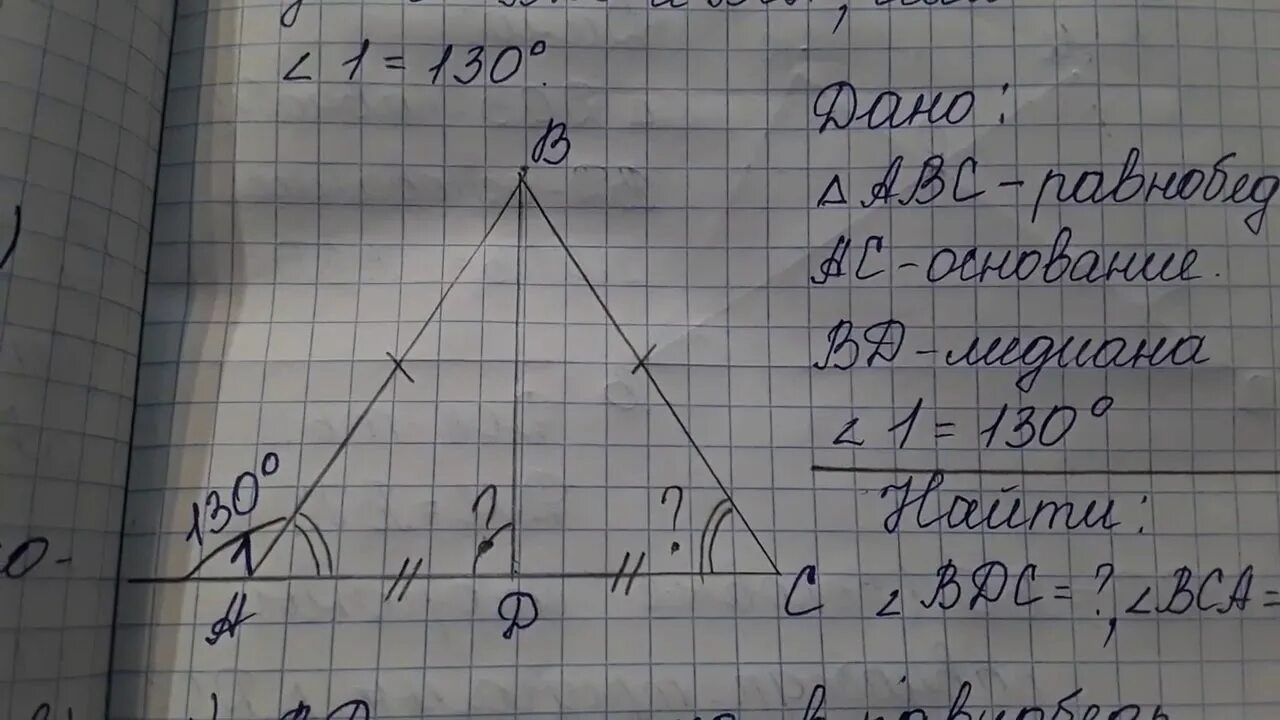 ∠ 1 = 130°.
Дано:
△ ABC - равнобед
AC - основание.
BD - медиана
∠ 1 = 130°
Найти:
∠ BDC = ?, ∠ BCA =
B
130°
1
?
?
A
D
C